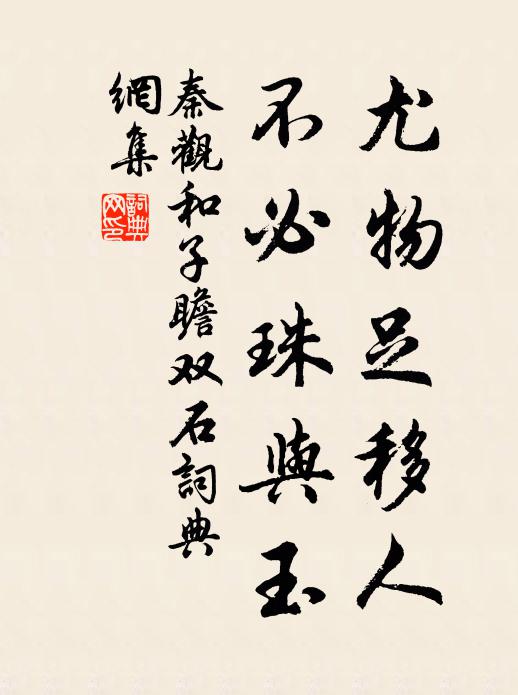 尤物足移人
不必珠與玉
秦觀和子瞻双石詞典
網集
詞典
网印